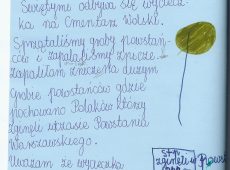 Świętymi odbyła się wyciecz-
ka na Cmentarz Wolski.
Sprzątaliśmy groby powstań-
ców i zapalaliśmy znicze.
Zapaliłam znicze na dużym
grobie powstańców gdzie
pochowano Polaków którzy
zginęli w czasie Powstania
Warszawskiego.
Uważam że wycieczka
Ś†P
zginęli w Pows